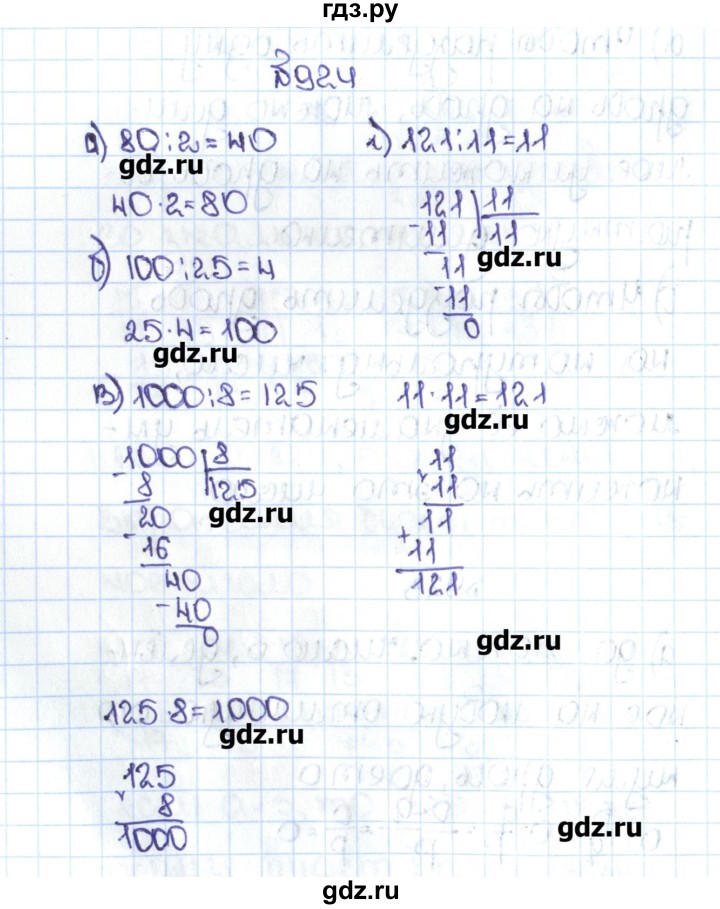 гдз.ру
№924
а) 80:2=40
gdz.ru
40·2=80
б) 100:25=4
25·4=100
gdz.ru
в) 1000:8=125
1000 8
- 8 125
gdz.ru
20
- 16
40
- 40
0
125·8=1000
gdz.ru
125
× 8
1000
г) 121:11=11
121 11
- 11 11
gdz.ru
11
- 11
0
11·11=121
gdz.ru
11
× 11
11
+ 11
121
gdz.ru
gdz.ru
gdz.ru